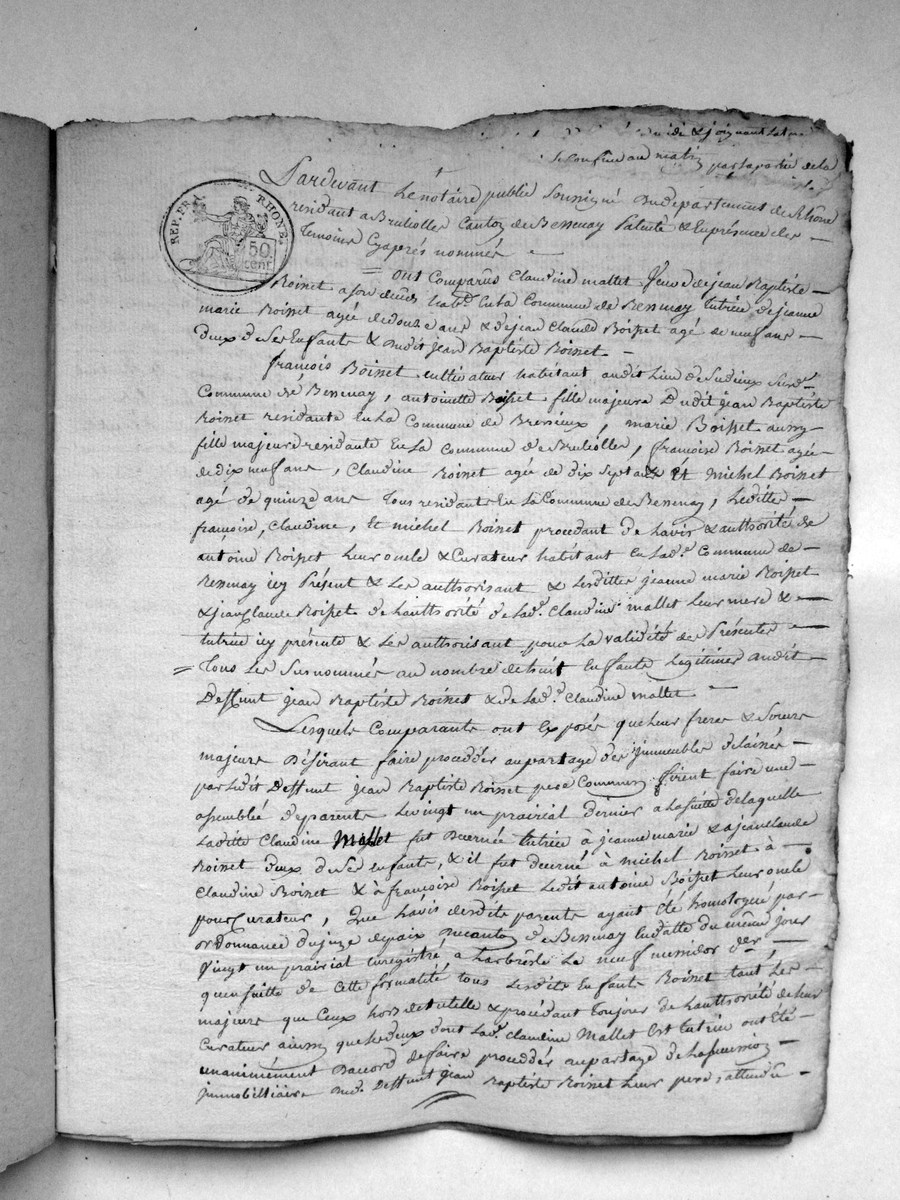 joignant la
le Confin au matin par la partie de la
REP. FRA. RHONE.
50 cent.
Pardevant Le notaire public Soussigné au departement du Rhône
residant a Brulliolles Canton de Bessenay Patenté & En présence des
temoins Cyaprés nommés
= ont Comparus Claudine mallet Veuve de jean Baptiste
Boinet a son deces hab.te En la Commune de Bessenay tutrice de jeanne
marie Boisset agée de douze ans & de jean Claude Boisset agé de neuf ans
deux de Ses Enfants & dudit jean Baptiste Boisset.
françois Boisset cultivateur habitant audit Lieu de Sudieux Susd.e
Commune de Bessenay, antoinette Boisset fille majeure Dudit jean Baptiste
Boisset residante En La Commune de Bressieux, marie Boisset aussy
fille majeure residante En La Commune de Brulliolles, françoise Boisset agée
de dix neuf ans, Claudine Boisset agée de dix Sept ans Et Michel Boisset
agé de quinze ans Tous residants En La Commune de Bessenay, Lesdittes
françoise, Claudine, Et michel Boisset procedant de Lavis & authorité de
antoine Boisset Leur oncle & Curateur habitant En Lad.e Commune de
Bessenay icy Présent & Les authorisant & Lesdittes jeanne marie Boisset
& jean Claude Boisset de Lauthorité de Lad.e Claudine mallet Leur mere &
tutrice icy présente & Les authorisant pour La validité des Présentes
= Tous Les Susnommés au nombre de huit Enfants Legitimes audit
Deffunt jean Baptiste Boisset & de Lad.e Claudine mallet
Lesquels Comparants ont Exposés que Leur freres & Soeurs
majeurs Désirant faire proceder au partage des immeubles delaissés
par Ledit Deffunt jean Baptiste Boisset pere Commun firent faire une
assemblée de parents Le vingt un prairial dernier a La suitte de laquelle
Laditte Claudine Mallet fut decernée tutrice à jeanne marie & a jean Claude
Boisset deux de Ses enfants, & il fut decerné à michel Boisset à
Claudine Boisset & à françoise Boisset Ledit antoine Boisset Leur oncle
pour Curateur, Que Lavis desdits parents ayant été homologué par
ordonnance du juge de paix du Canton de Bessenay En datte du même jour
Vingt un prairial Enregistré a Larbresle Le neuf messidor der
quensuitte de Cette formalité tous Lesdits Enfants Boisset tant Les
majeurs que Ceux hors de tutelle & procédant toujour de Lauthorité de leur
Curateur ainsy que Les deux dont Lad.e Claudine Mallet Est tutrice ont été
unanimément Daccord de faire proceder au partage de La succession
immobilliaire dud. Deffunt jean Baptiste Boisset Leur pere, attendu